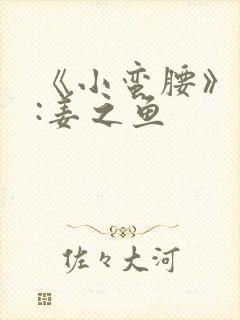 《小蛮腰》
:姜之鱼
佐々大河